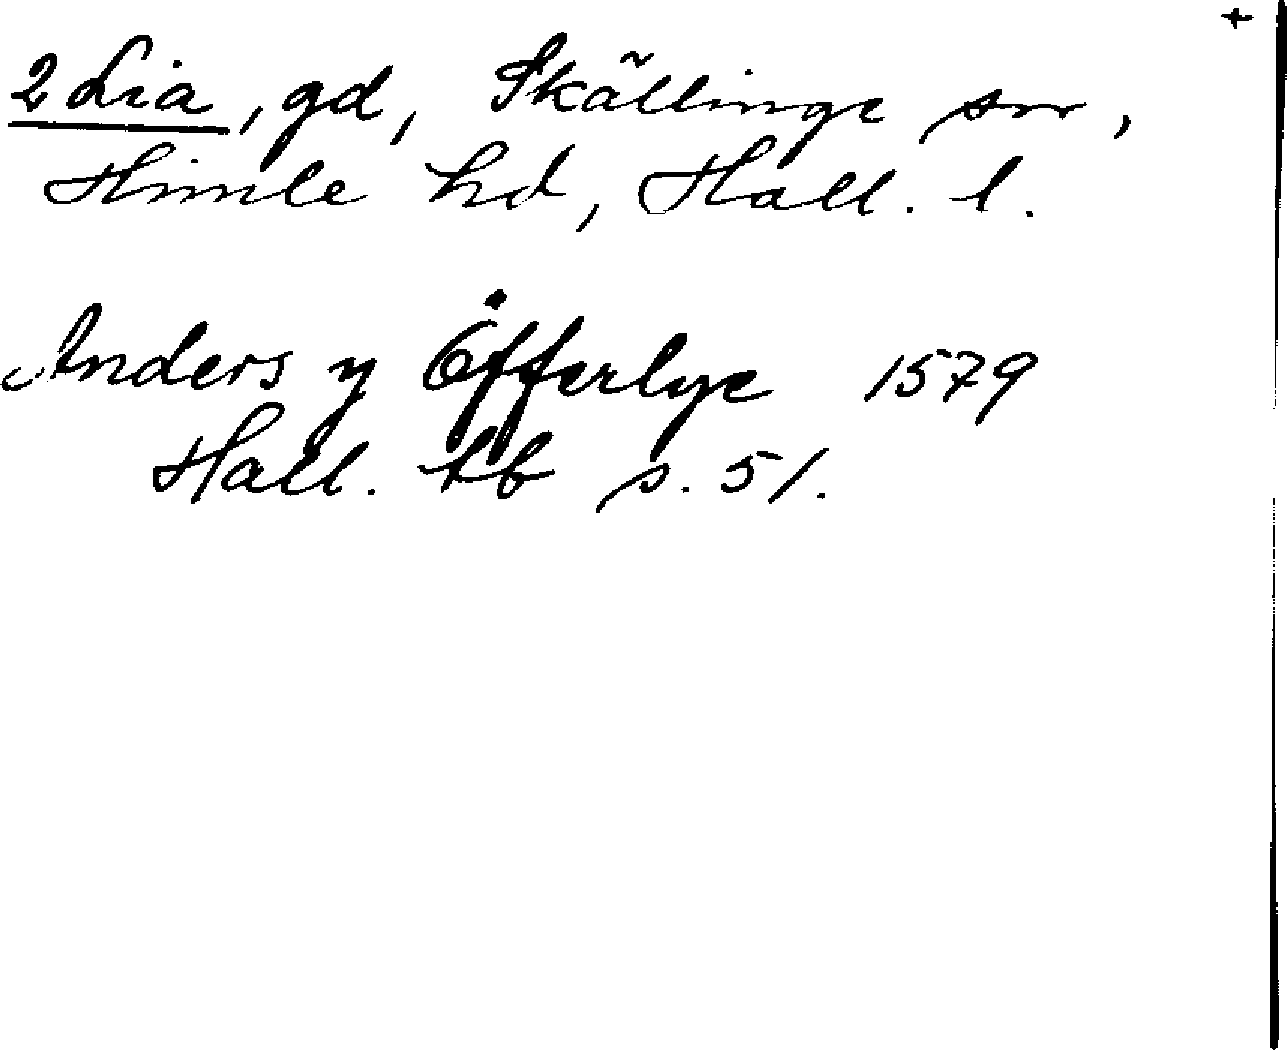 +
2 Lia, gd, Skällinge sn,
Himle hd, Hall. l.
Anders y Öfferlye 1579
Hall. tb s. 51.